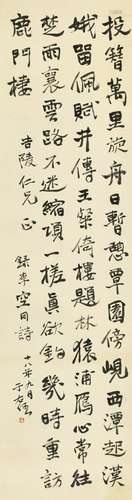 投簪萬里旋舟日暫憩覃園傍峴西潭起漢
娥留佩賦井傳王粲倚樓題林猿浦雁心常往
楚雨襄雲路不迷縮項一槎真欲釣幾時重訪
鹿門棲
吉陵仁兄正
錄李空同詩
十八年九月
于右任